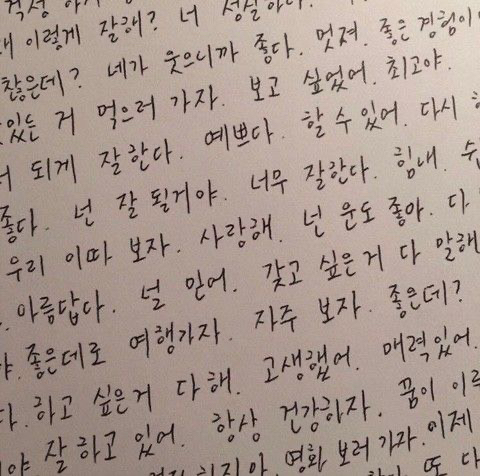 걱정
이렇게 잘해? 너 성실하다.
찮은데? 네가 웃으니까 좋다. 멋져. 좋은 경험이
있는 거 먹으러 가자. 보고 싶었어. 최고야.
되게 잘한다. 예쁘다. 할 수 있어. 다시
좋다. 넌 잘 될거야. 너무 잘한다. 힘내.
우리 이따 보자. 사랑해. 넌 운도 좋아. 다
아름답다. 널 믿어. 갖고 싶은거 다 말해
좋은데로 여행가자. 자주 보자. 좋은데?
하고 싶은거 다 해. 고생했어. 매력있어.
잘 하고 있어. 항상 건강하자. 꿈이 이루
영화 보러 가자. 이제
또 다